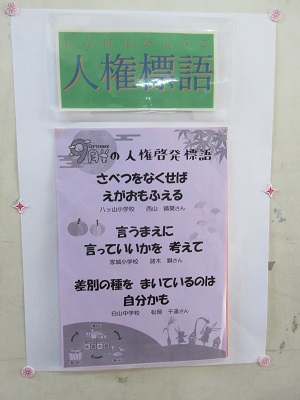 人権標語
9月
SEPTEMBER
の人権啓発標語
さべつをなくせば
えがおもふえる
八ッ山小学校 西山
さん
言うまえに
言っていいかを 考えて
家城小学校
さん
差別の種を まいているのは
自分かも
白山中学校
さん